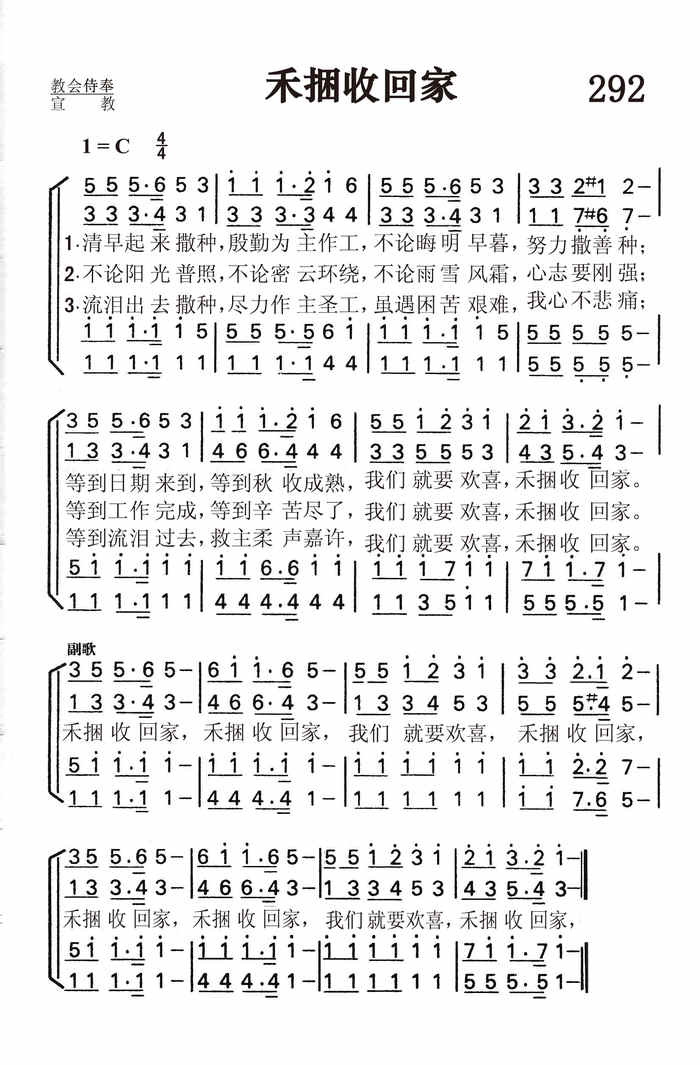 教会侍奉
宣 教
禾捆收回家
292
1=C 4/4
5 5 5·6 5 3 | i i i·2 i 6 | 5 5 5·6 5 3 | 3 3 2 #1 2 –
3 3 3·4 3 1 | 3 3 3·3 4 4 | 3 3 3·4 3 1 | 1 1 7 #6 7 –
1·清早起来撒种,殷勤为主作工,不论晦明早暮,努力撒善种;
2·不论阳光普照,不论密云环绕,不论雨雪风霜,心志要刚强;
3·流泪出去撒种,尽力作主圣工,虽遇困苦艰难,我心不悲痛;
i i i·i i 5 | 5 5 5·5 6 i | i i i·i i 5 | 5 5 5 5 5 –
1 1 1·1 1 1 | 1 1 1·1 4 4 | 1 1 1·1 1 1 | 5 5 5 5 5 –
3 5 5·6 5 3 | i i i·2 i 6 | 5 5 i 2 3 i | 2 i 3·2 i –
1 3 3·4 3 1 | 4 6 6·4 4 4 | 3 3 5 5 5 3 | 4 5 5·4 3 –
等到日期来到,等到秋收成熟,我们就要欢喜,禾捆收回家。
等到工作完成,等到辛苦尽了,我们就要欢喜,禾捆收回家。
等到流泪过去,救主柔声嘉许,我们就要欢喜,禾捆收回家。
5 i i·i i i | i i 6·6 i i | i i i 7 i i | 7 i i·7 i –
1 1 1·1 1 1 | 4 4 4·4 4 4 | 1 1 3 5 1 1 | 5 5 5·5 1 –
副歌
3 5 5·6 5 – | 6 i i·6 5 – | 5 5 i 2 3 i | 3 3 2·i 2 –
1 3 3·4 3 – | 4 6 6·4 3 – | 1 3 3 4 5 3 | 5 5 5·#4 5 –
禾捆收回家,禾捆收回家,我们就要欢喜,禾捆收回家,
5 i i·i i – | i i i·i i – | i i i i i i | i i 2·2 7 –
1 1 1·1 1 – | 4 4 4·4 1 – | 1 1 1 1 1 1 | 5 5 7·6 5 –
3 5 5·6 5 – | 6 i i·6 5 – | 5 5 i 2 3 i | 2 i 3·2 i –
1 3 3·4 3 – | 4 6 6·4 3 – | 1 3 3 4 5 3 | 4 3 5·4 3 –
禾捆收回家,禾捆收回家,我们就要欢喜,禾捆收回家,
5 i i·i i – | i i i·i i – | i i i i i i | 7 i i·7 i –
1 1 1·1 1 – | 4 4 4·4 1 – | 1 1 1 1 1 1 | 5 5 5·5 1 –